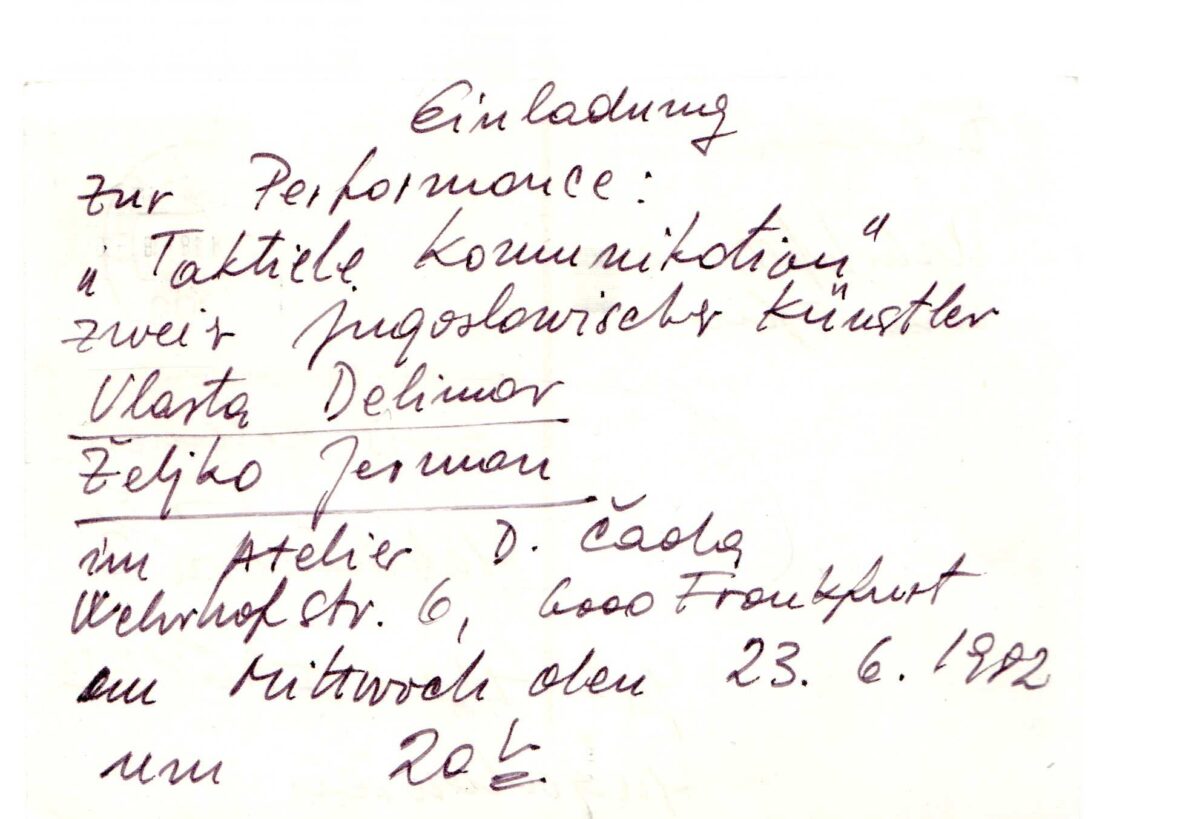 Einladung
zur Performance:
„Taktiele Komunikation“
zweier jugoslowischer Künstler
Vlasta Delimar
Željko Jerman
im Atelier D. Čada
Wehrhofstr. 6, 6000 Frankfurt
am Mittwoch den 23. 6. 1982
um 20 h